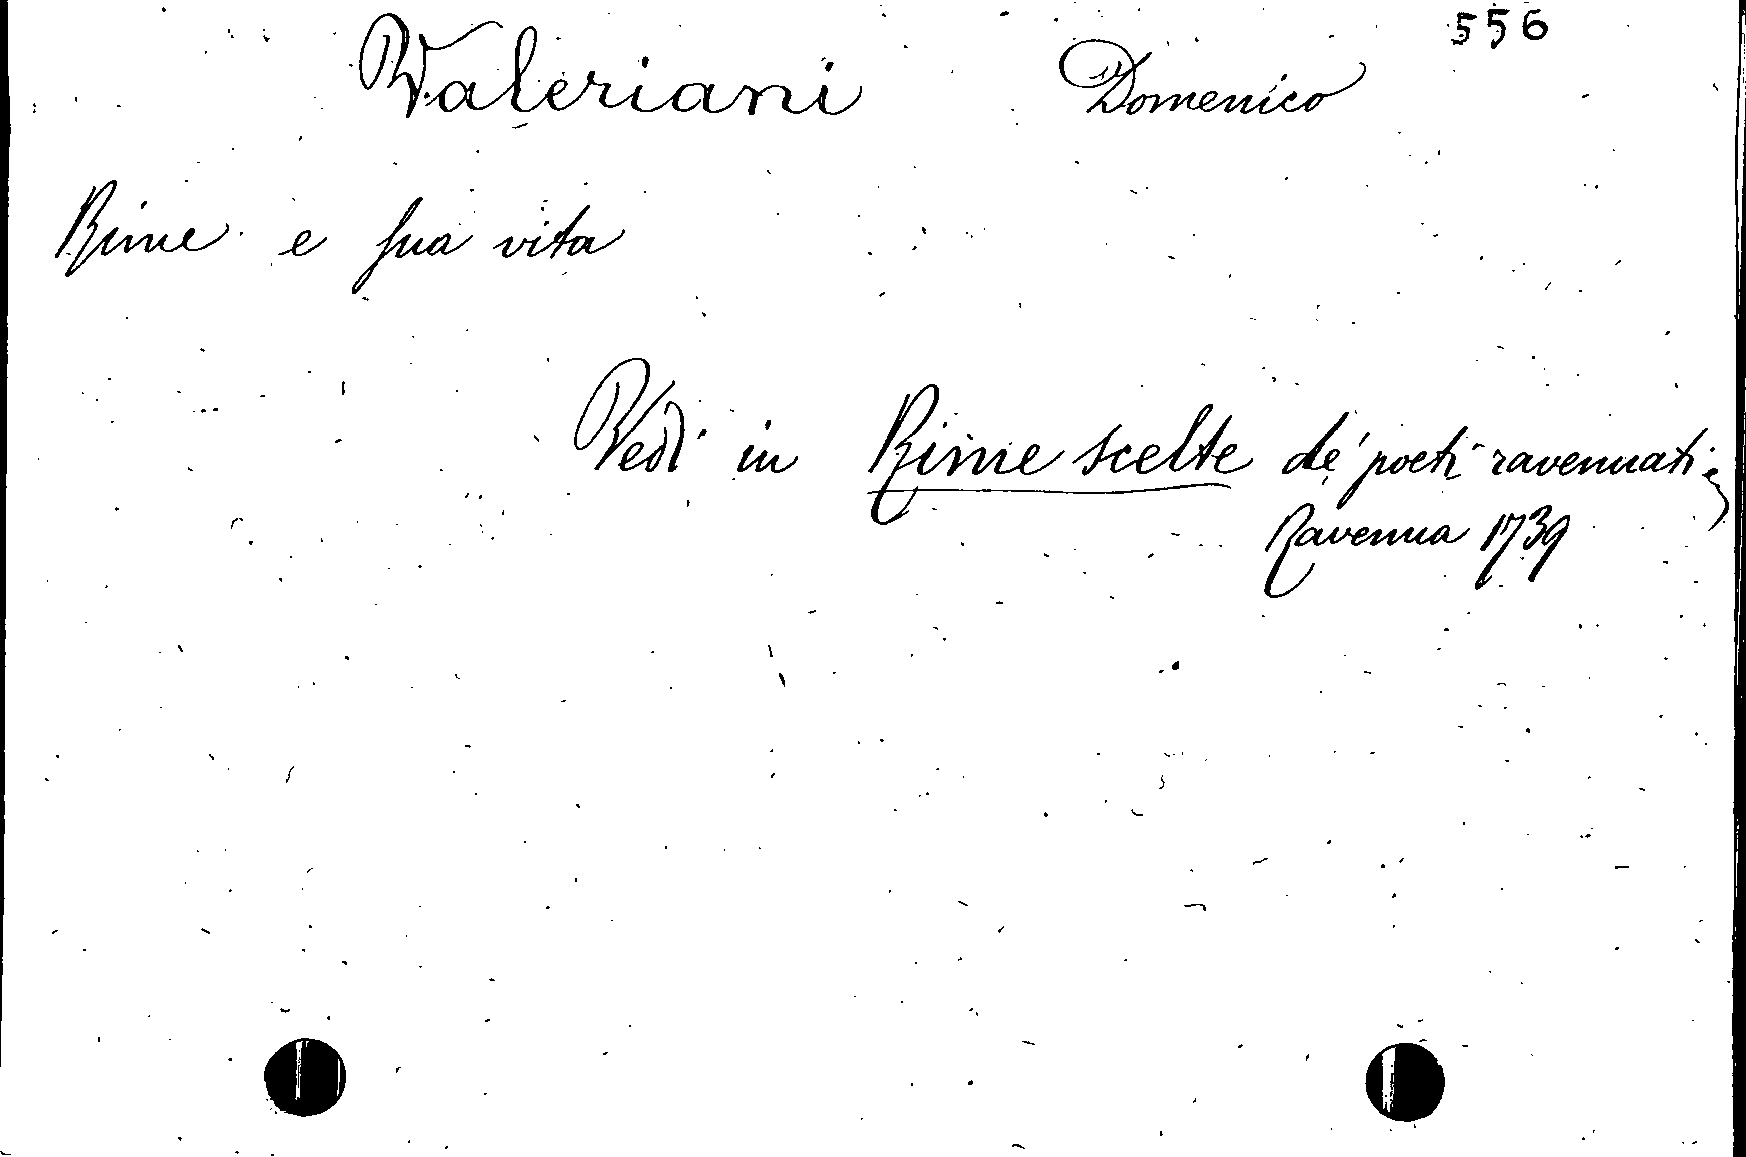 556
Valeriani Domenico
Rime e sua vita
Vedi in Rime scelte de' poeti ravennati,
Ravenna 1739